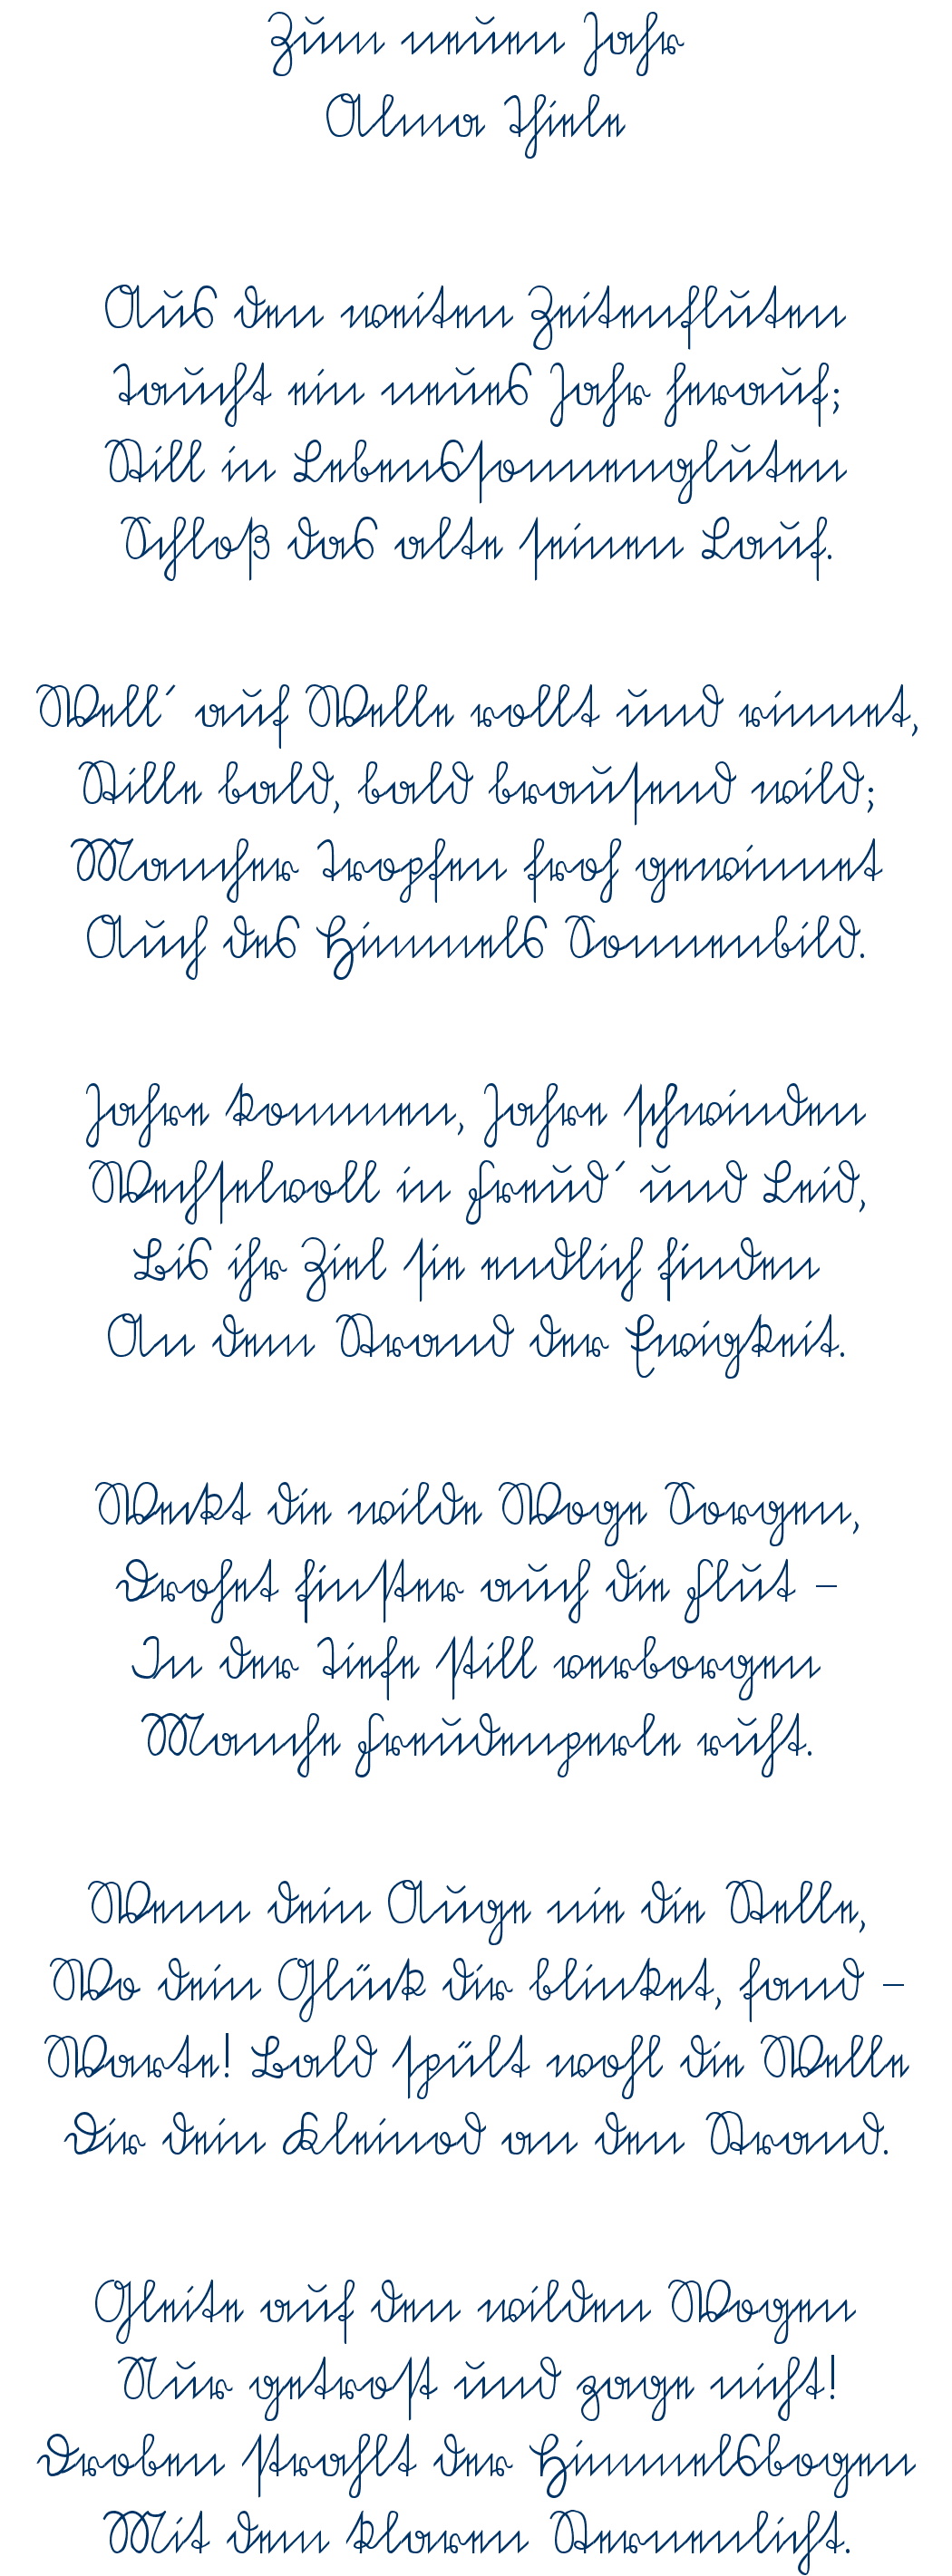 Zum neuen Jahr
Alma Thiele
Aus den weiten Zeitenfluten
Taucht ein neues Jahr herauf;
Still in Lebenssonnengluten
Schloß das alte seinen Lauf.
Well´ auf Welle rollt und rinnet,
Stille bald, bald brausend wild;
Mancher Tropfen froh gewinnet
Auch des Himmels Sonnenbild.
Jahre kommen, Jahre schwinden
Wechselvoll in Freud´ und Leid,
Bis ihr Ziel sie endlich finden
An dem Strand der Ewigkeit.
Weckt die wilde Woge Sorgen,
Drohet finster auch die Flut –
In der Tiefe still verborgen
Manche Freudenperle ruht.
Wenn dein Auge nie die Stelle,
Wo dein Glück dir blinket, fand –
Warte! Bald spült wohl die Welle
Dir dein Kleinod an den Strand.
Gleite auf den wilden Wogen
Nur getrost und zage nicht!
Droben strahlt der Himmelsbogen
Mit dem klaren Sternenlicht.